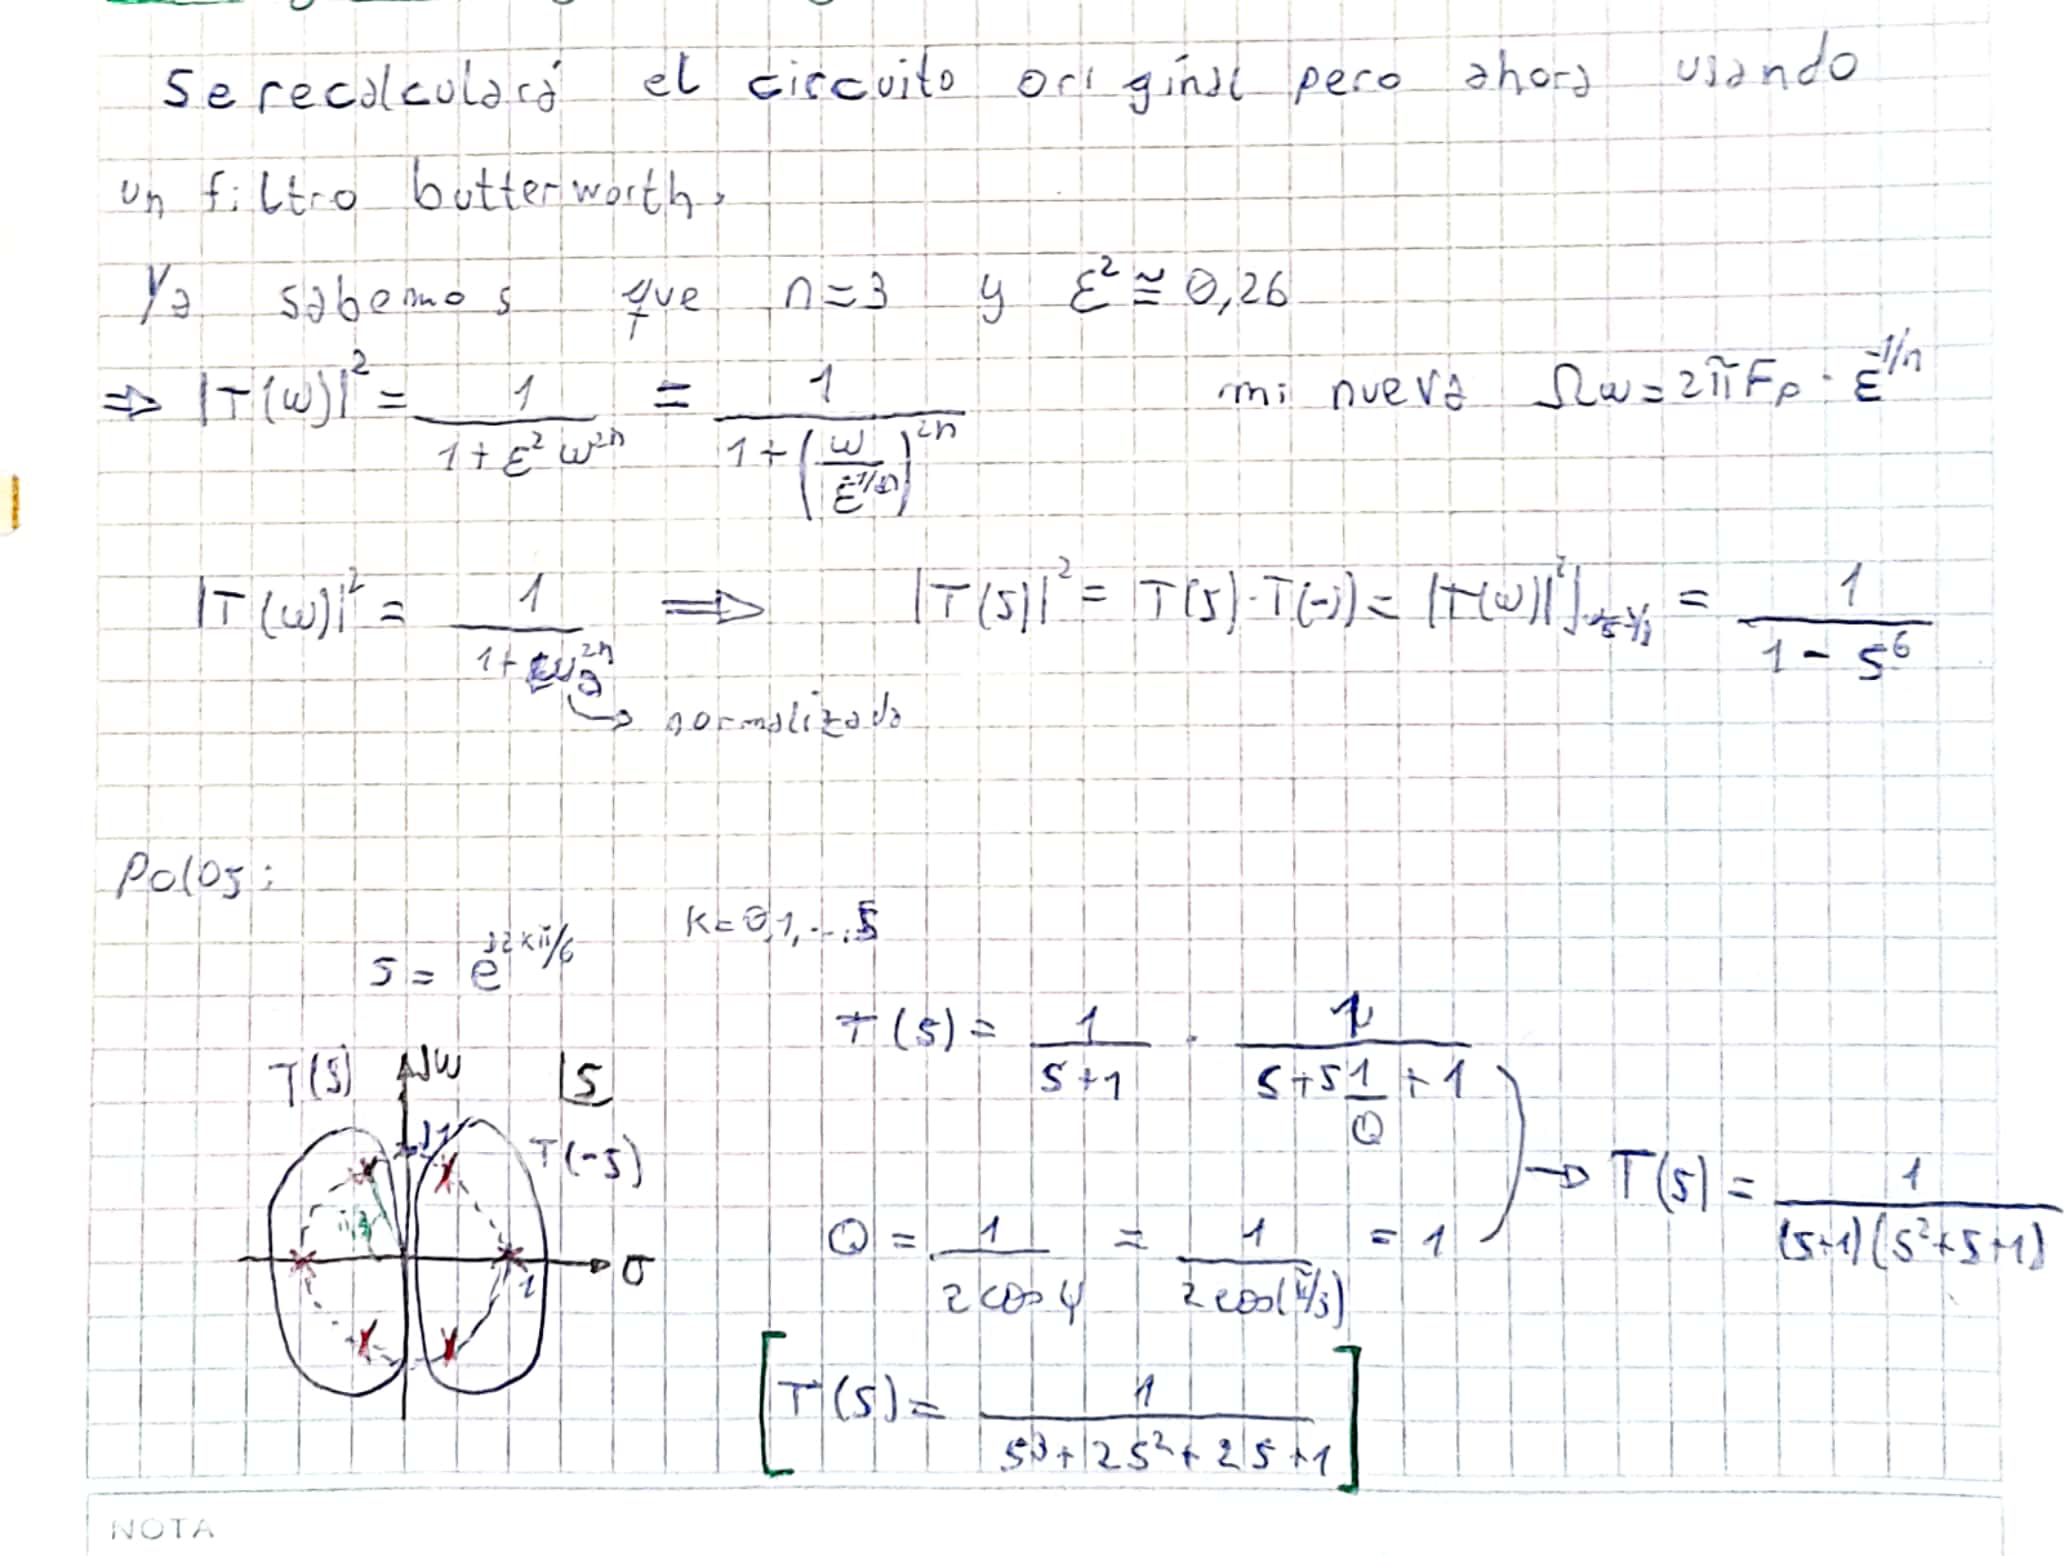 Se recalculará el circuito original pero ahora usando
un filtro butterworth.
Ya sabemos que n=3 y ε² ≅ 0,26
⇒ |T(ω)|² = 1/(1+ε² ω²ⁿ) = 1/(1+(ω/ε^(-1/n))²ⁿ) mi nueva Ωω = 2πFp · ε^(-1/n)
|T(ω)|² = 1/(1+ω²ⁿ) ⟹ |T(s)|² = T(s)·T(-s) = |T(ω)|²] = 1/(1-s⁶)
→ normalizada
Polos:
s = e^(j2kπ/6) k=0,1,...5
T(s) = 1/(s+1) · 1/(s+s 1/Q +1)
T(s) jω |s
j1 T(-s)
π/3
1 σ
Q = 1/(2cosψ) = 1/(2cos(π/3)) = 1 → T(s) = 1/((s+1)(s²+s+1))
[T(s) = 1/(s³+2s²+2s+1)]
NOTA